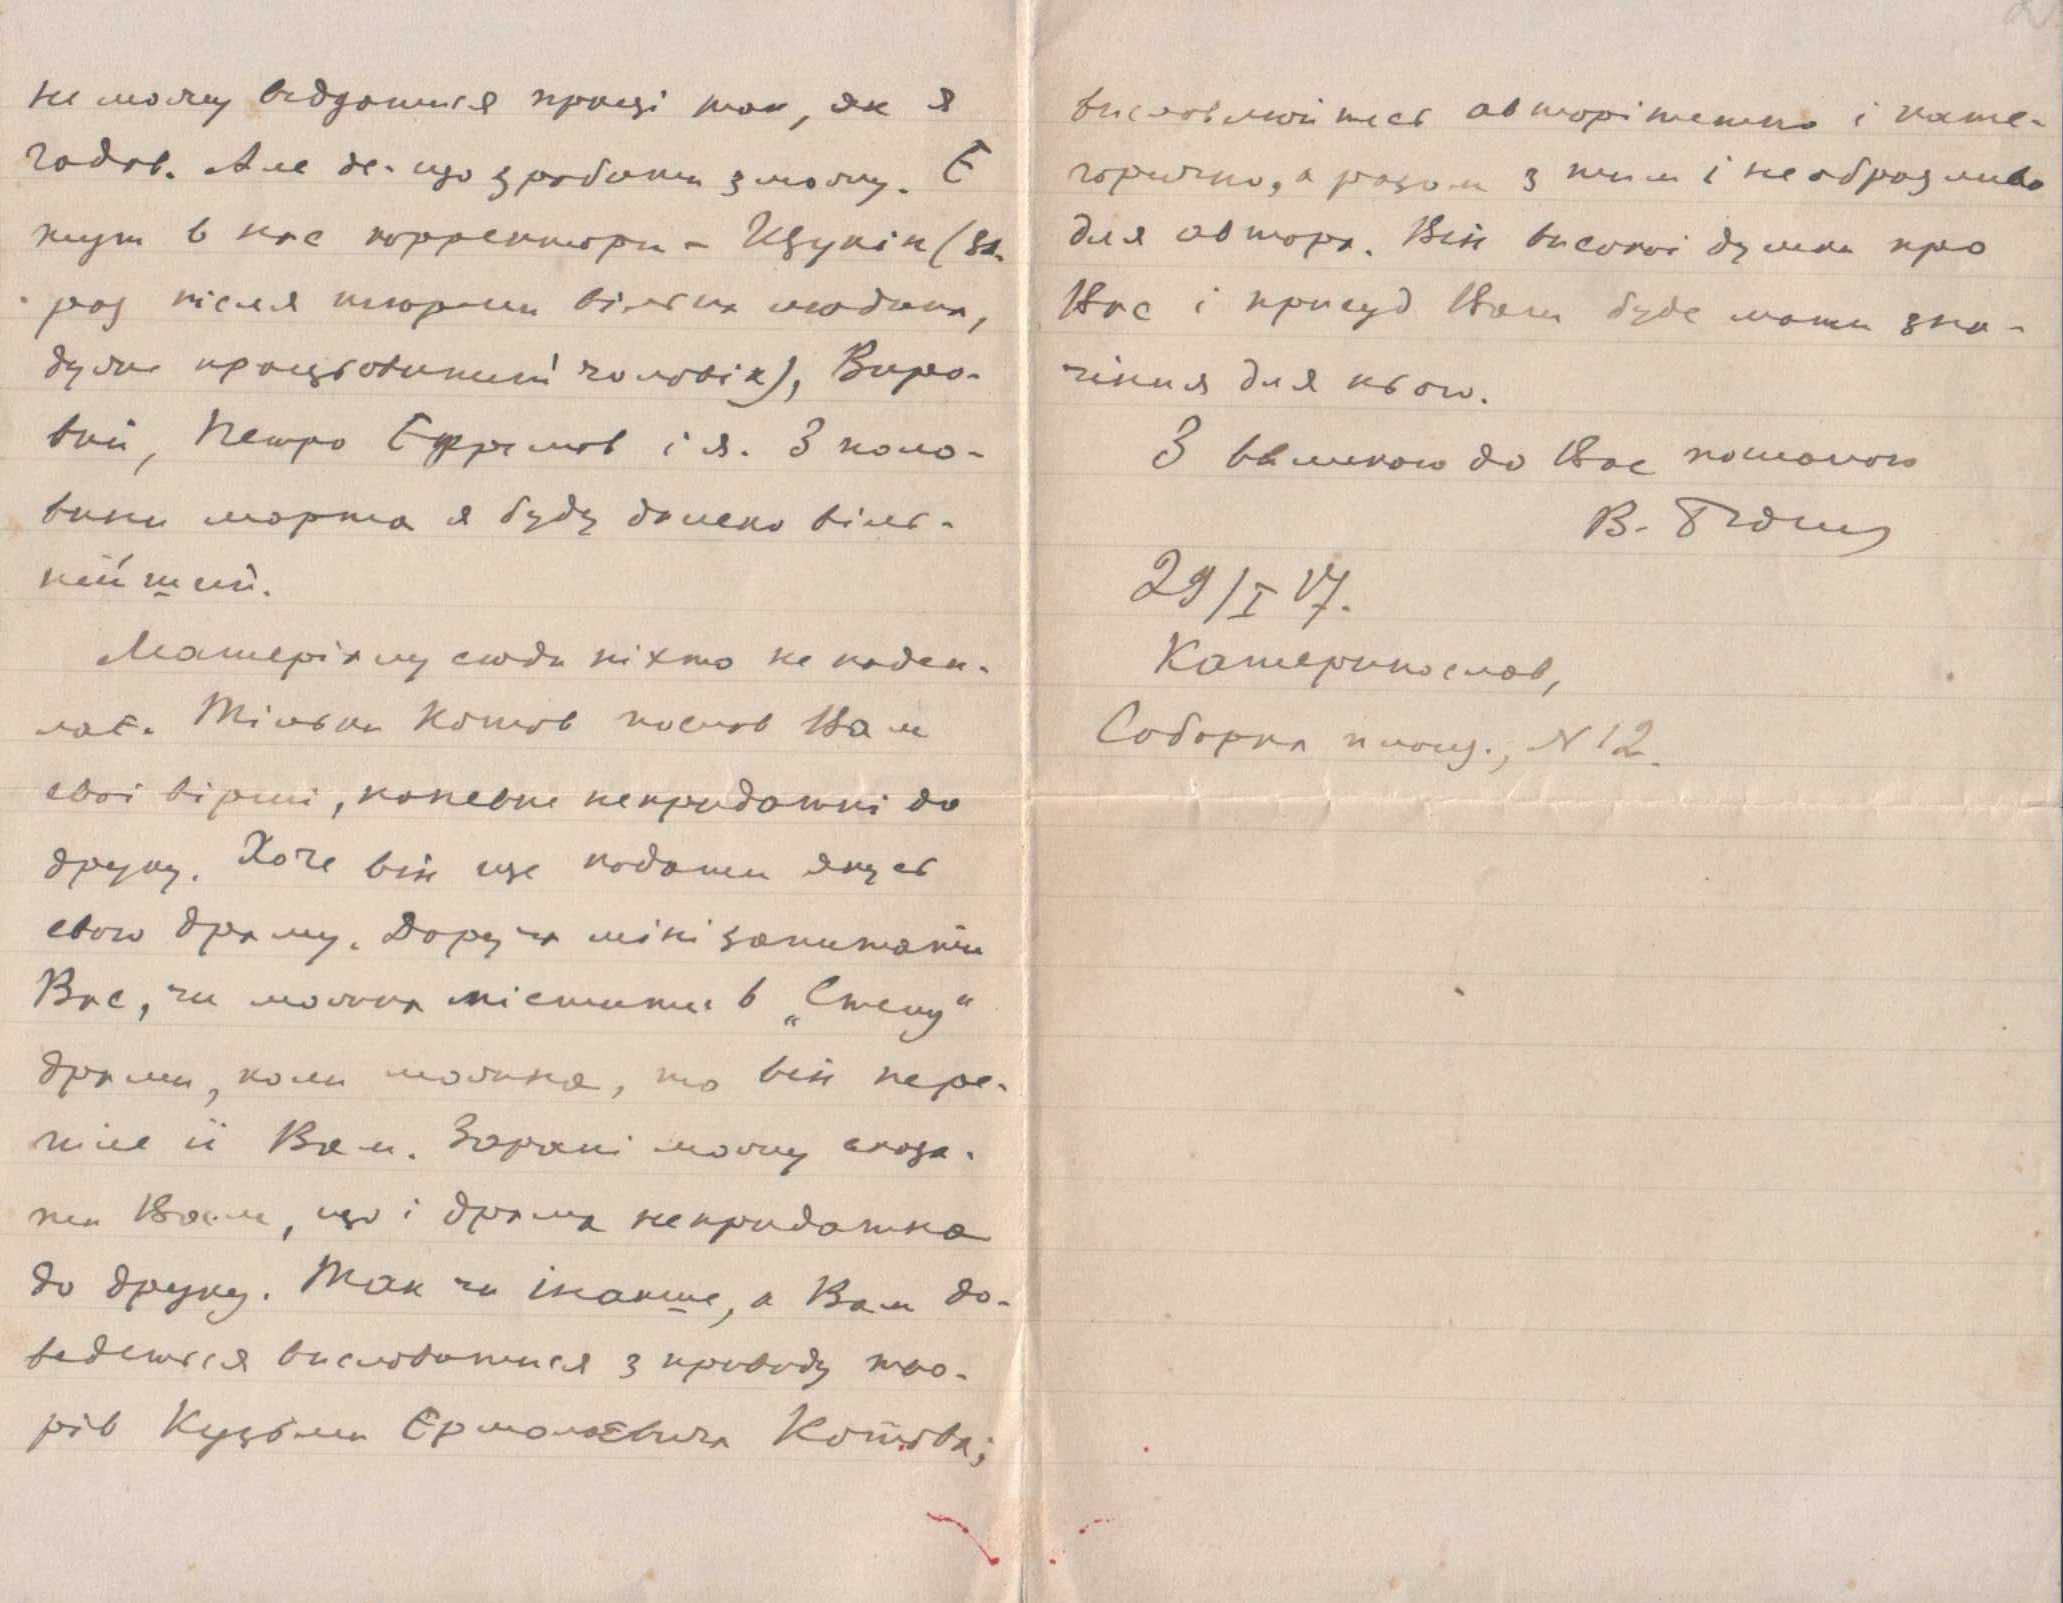 не можу віддатися праці так, як я
гадав. Але де-що зробити зможу. Є
тут в нас корректори - Щукін (за-
раз після тюрми вільна людина,
дуже працьовитий чоловік), Виро-
вий, Петро Ефремов і я. З поло-
вини марта я буду далеко віль-
нійший.
Матеріялу сюди ніхто не надси-
лає. Тільки Котов послав Вам
свої вірші, напевне непридатні до
друку. Хоче він ще подати якусь
свою драму. Доруча мені запитати
Вас, чи можна містити в „Степу"
драми, коли можна, то він пере-
шле її Вам. Зарані можу сказа-
ти Вам, що і драма непридатна
до друку. Так чи інакше, а Вам до-
ведеться висловитися з приводу тво-
рів Кузьми Єрмолаєвича Котова;
висловлюйтесь авторітетно і кате-
горично, а разом з тим і необразливо
для автора. Він високої думки про
Вас і присуд Ваш буде мати зна-
чіння для нього.
З великою до Вас пошаною
В. Підми
29/I 17.
Катеринослав,
Соборна площ., N 12.